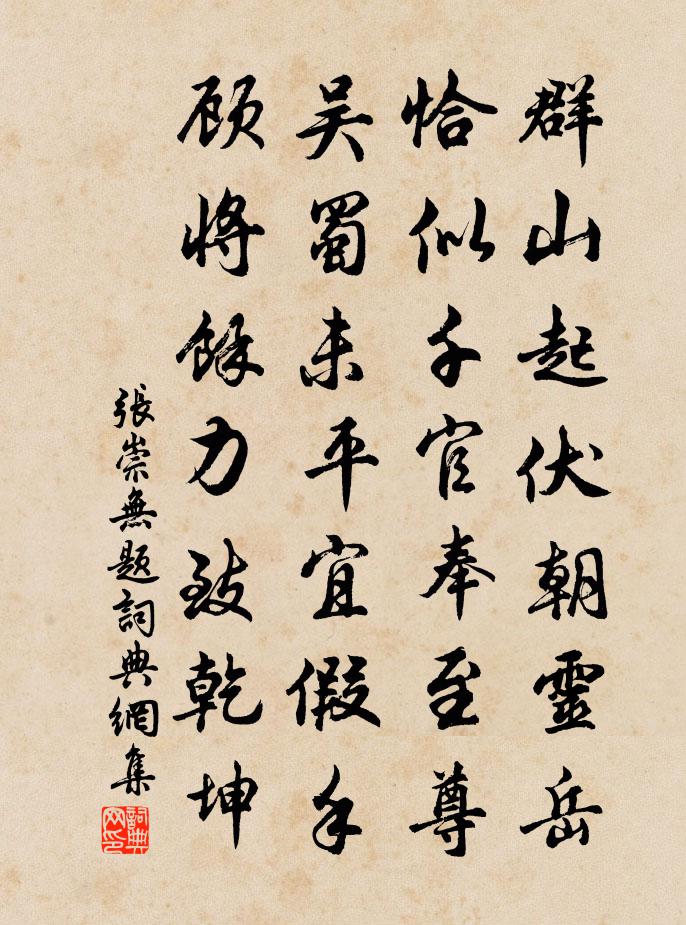 群山起伏朝靈岳
恰似千官奉至尊
吴蜀未平宜假手
顾將餘力致乾坤
張崇無题詞典網集
詞典网印